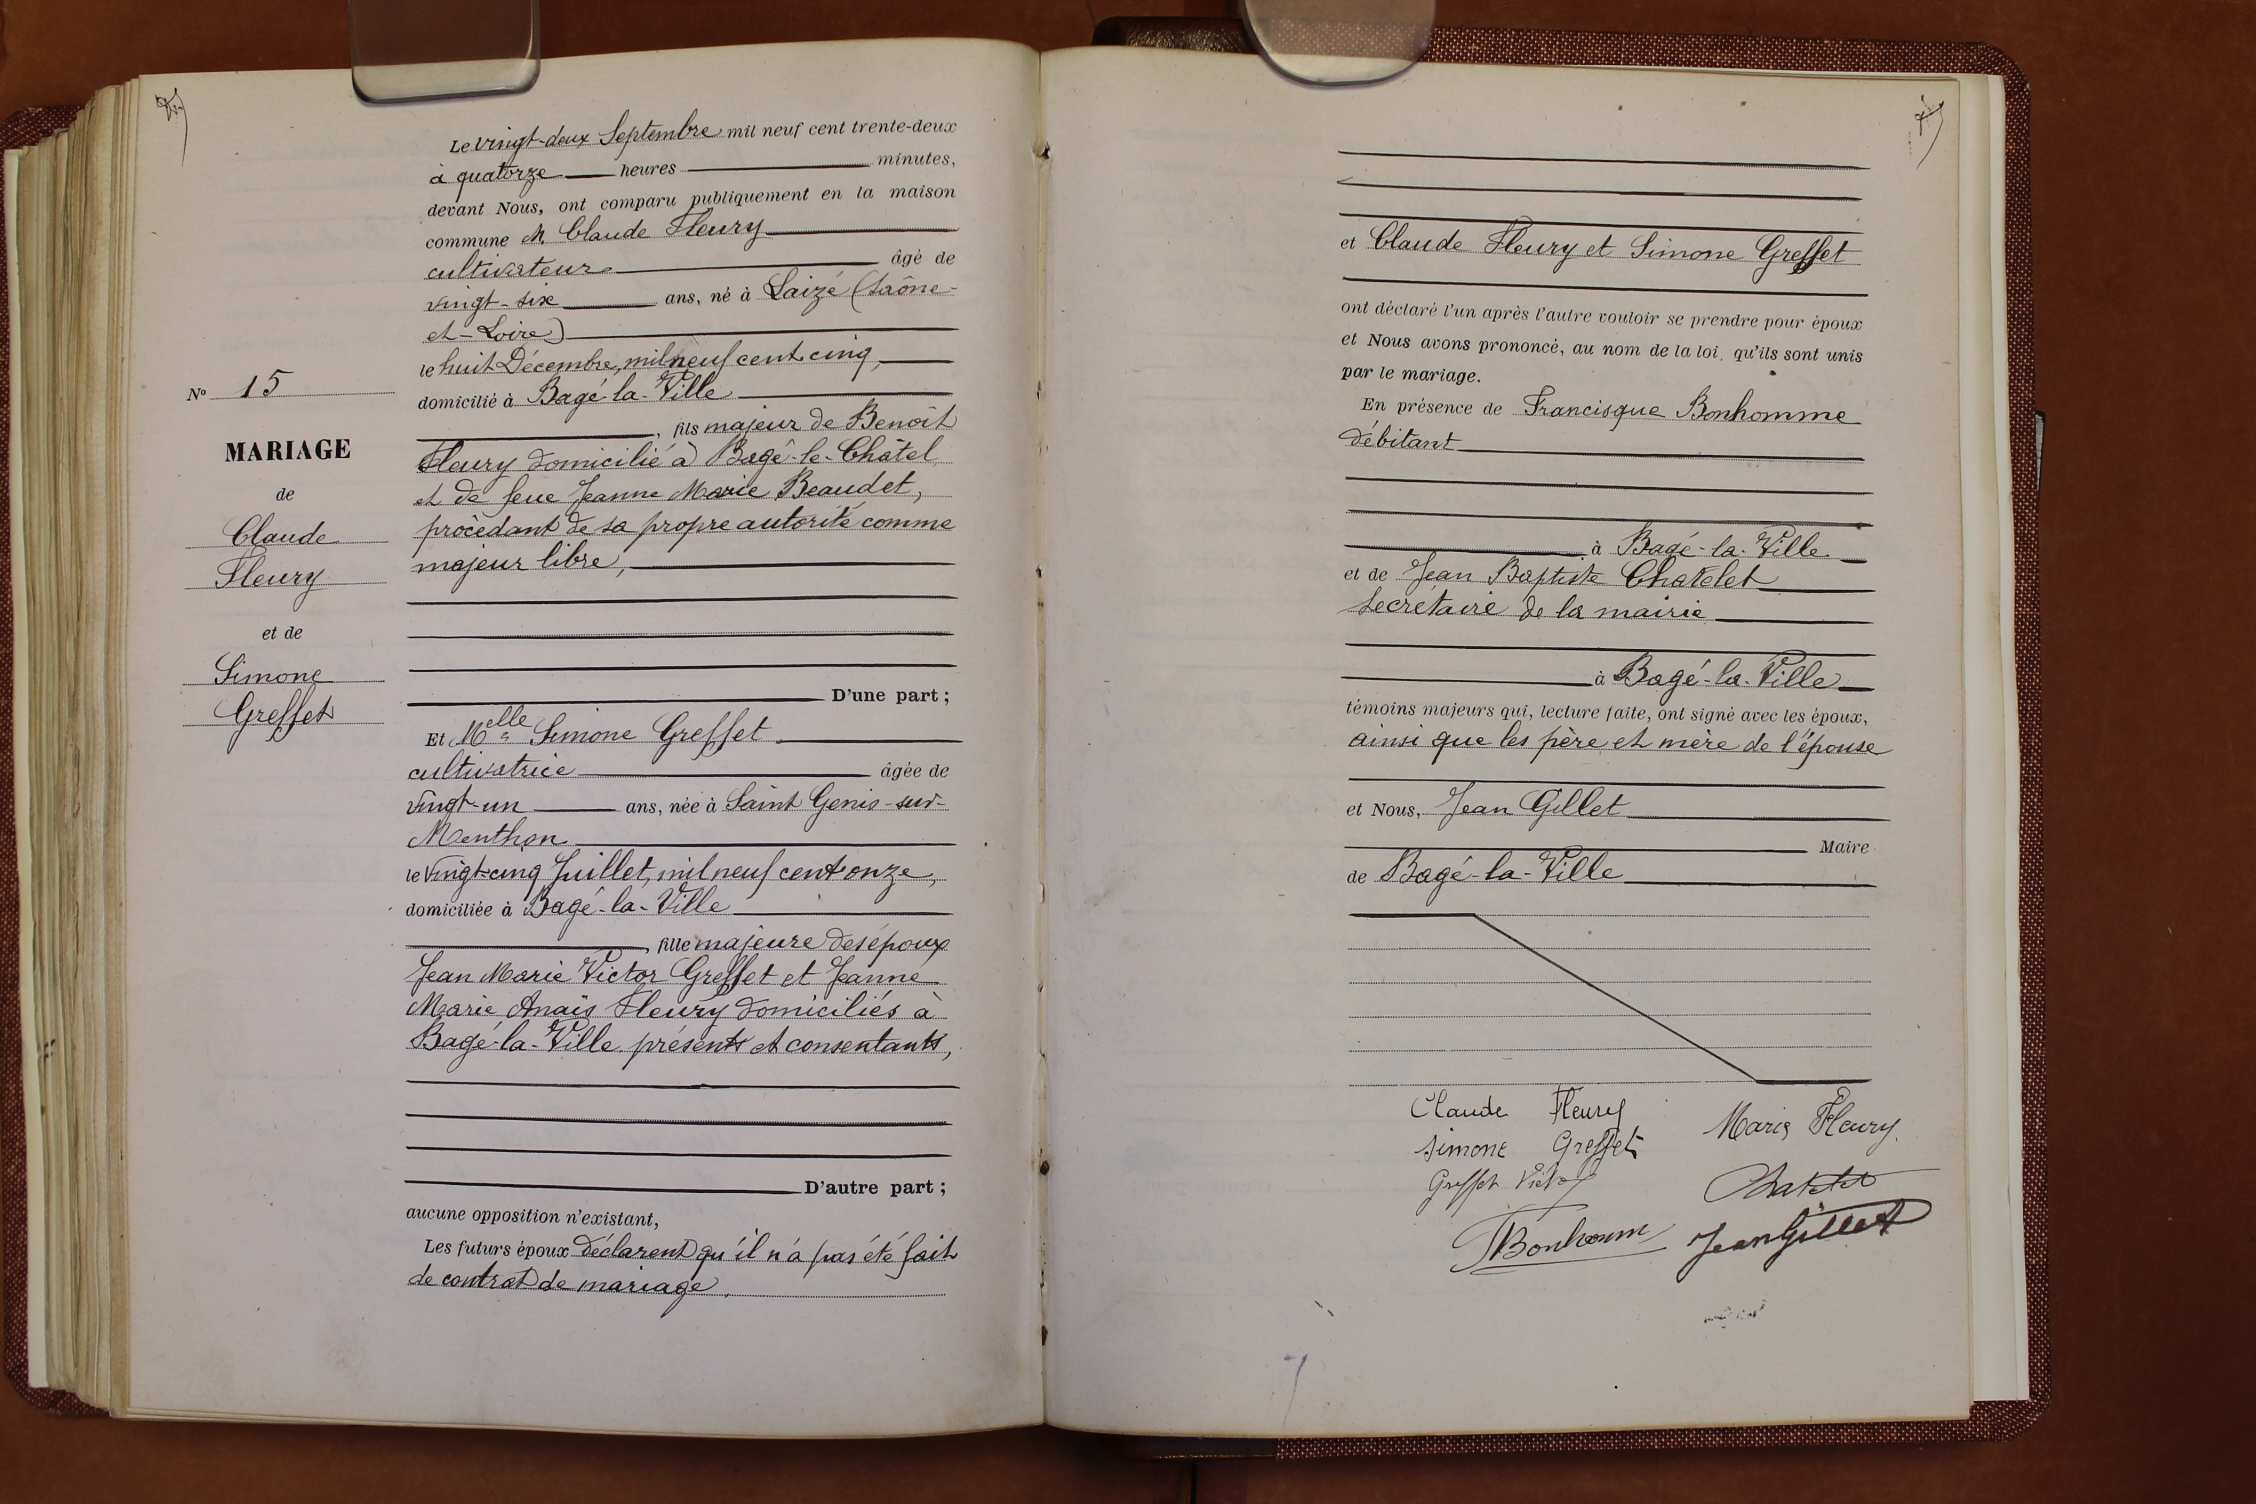 Le vingt-deux Septembre mil neuf cent trente-deux
à quatorze heures minutes,
devant Nous, ont comparu publiquement en la maison
commune M. Claude Fleury
cultivateur âgé de
vingt-six ans, né à Laizé (Saône-
et-Loire)
le huit Décembre, mil neuf cent cinq,
domicilié à Bagé-la-Ville
, fils majeur de Benoît
Fleury domicilié à Bagé-le-Châtel
et de feue Jeanne Marie Beaudet,
procédant de sa propre autorité comme
majeur libre,
D'une part ;
No 15
MARIAGE
de
Claude
Fleury
et de
Simone
Greffet
Et Melle Simone Greffet
cultivatrice âgée de
vingt-un ans, née à Saint Genis-sur-
Menthon
le vingt-cinq Juillet, mil neuf cent onze,
domiciliée à Bagé-la-Ville
, fille majeure des époux
Jean Marie Victor Greffet et Jeanne
Marie Anaïs Fleury domiciliés à
Bagé-la-Ville présents et consentants,
D'autre part ;
aucune opposition n'existant,
Les futurs époux déclarent qu'il n'a pas été fait
de contrat de mariage.
et Claude Fleury et Simone Greffet
ont déclaré l'un après l'autre vouloir se prendre pour époux
et Nous avons prononcé, au nom de la loi, qu'ils sont unis
par le mariage.
En présence de Francisque Bonhomme
débitant
à Bagé-la-Ville
et de Jean Baptiste Chatelet
secrétaire de la mairie
à Bagé-la-Ville
témoins majeurs qui, lecture faite, ont signé avec les époux,
ainsi que les père et mère de l'épouse
et Nous, Jean Gillet
Maire
de Bagé-la-Ville
Claude Fleury
Marie Fleury.
Simone Greffet
Greffet Victor
Chatelet
Bonhomme
Jean Gillet